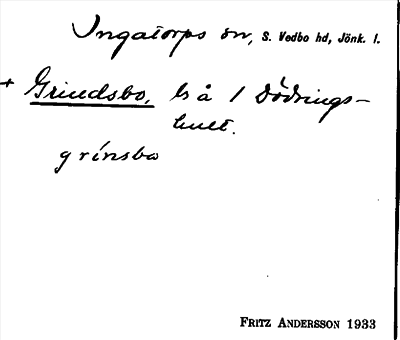 Ingatorps sn, S. Vedbo hd, Jönk. l.
+ Grindsbo, ls å 1 Dödrings-
hult.
grínsbo
FRITZ ANDERSSON 1933